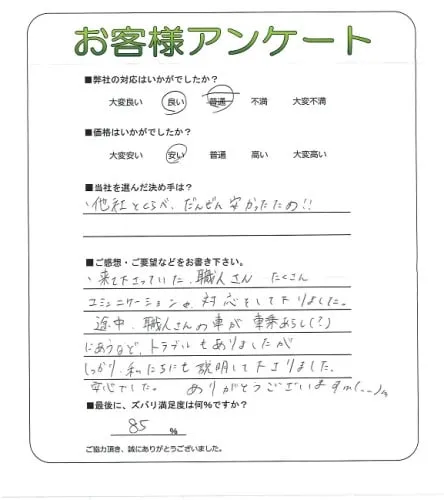 お客様アンケート
■弊社の対応はいかがでしたか?
大変良い 良い 普通 不満 大変不満
■価格はいかがでしたか?
大変安い 安い 普通 高い 大変高い
■当社を選んだ決め手は?
、他社とくらべ、だんぜん安かったため!!
■ご感想・ご要望などをお書き下さい。
、来て下さっていた、職人さん たくさん
コミュニケーションや、対応をして下りました。
途中、職人さんの車が 車乗あらし(?)
にあうなど、トラブルもありましたが
しっかり、私たちにも説明して下さりました。
安心でした。 ありがとうございますm(__)m
■最後に、ズバリ満足度は何%ですか?
85 %
ご協力頂き、誠にありがとうございました。